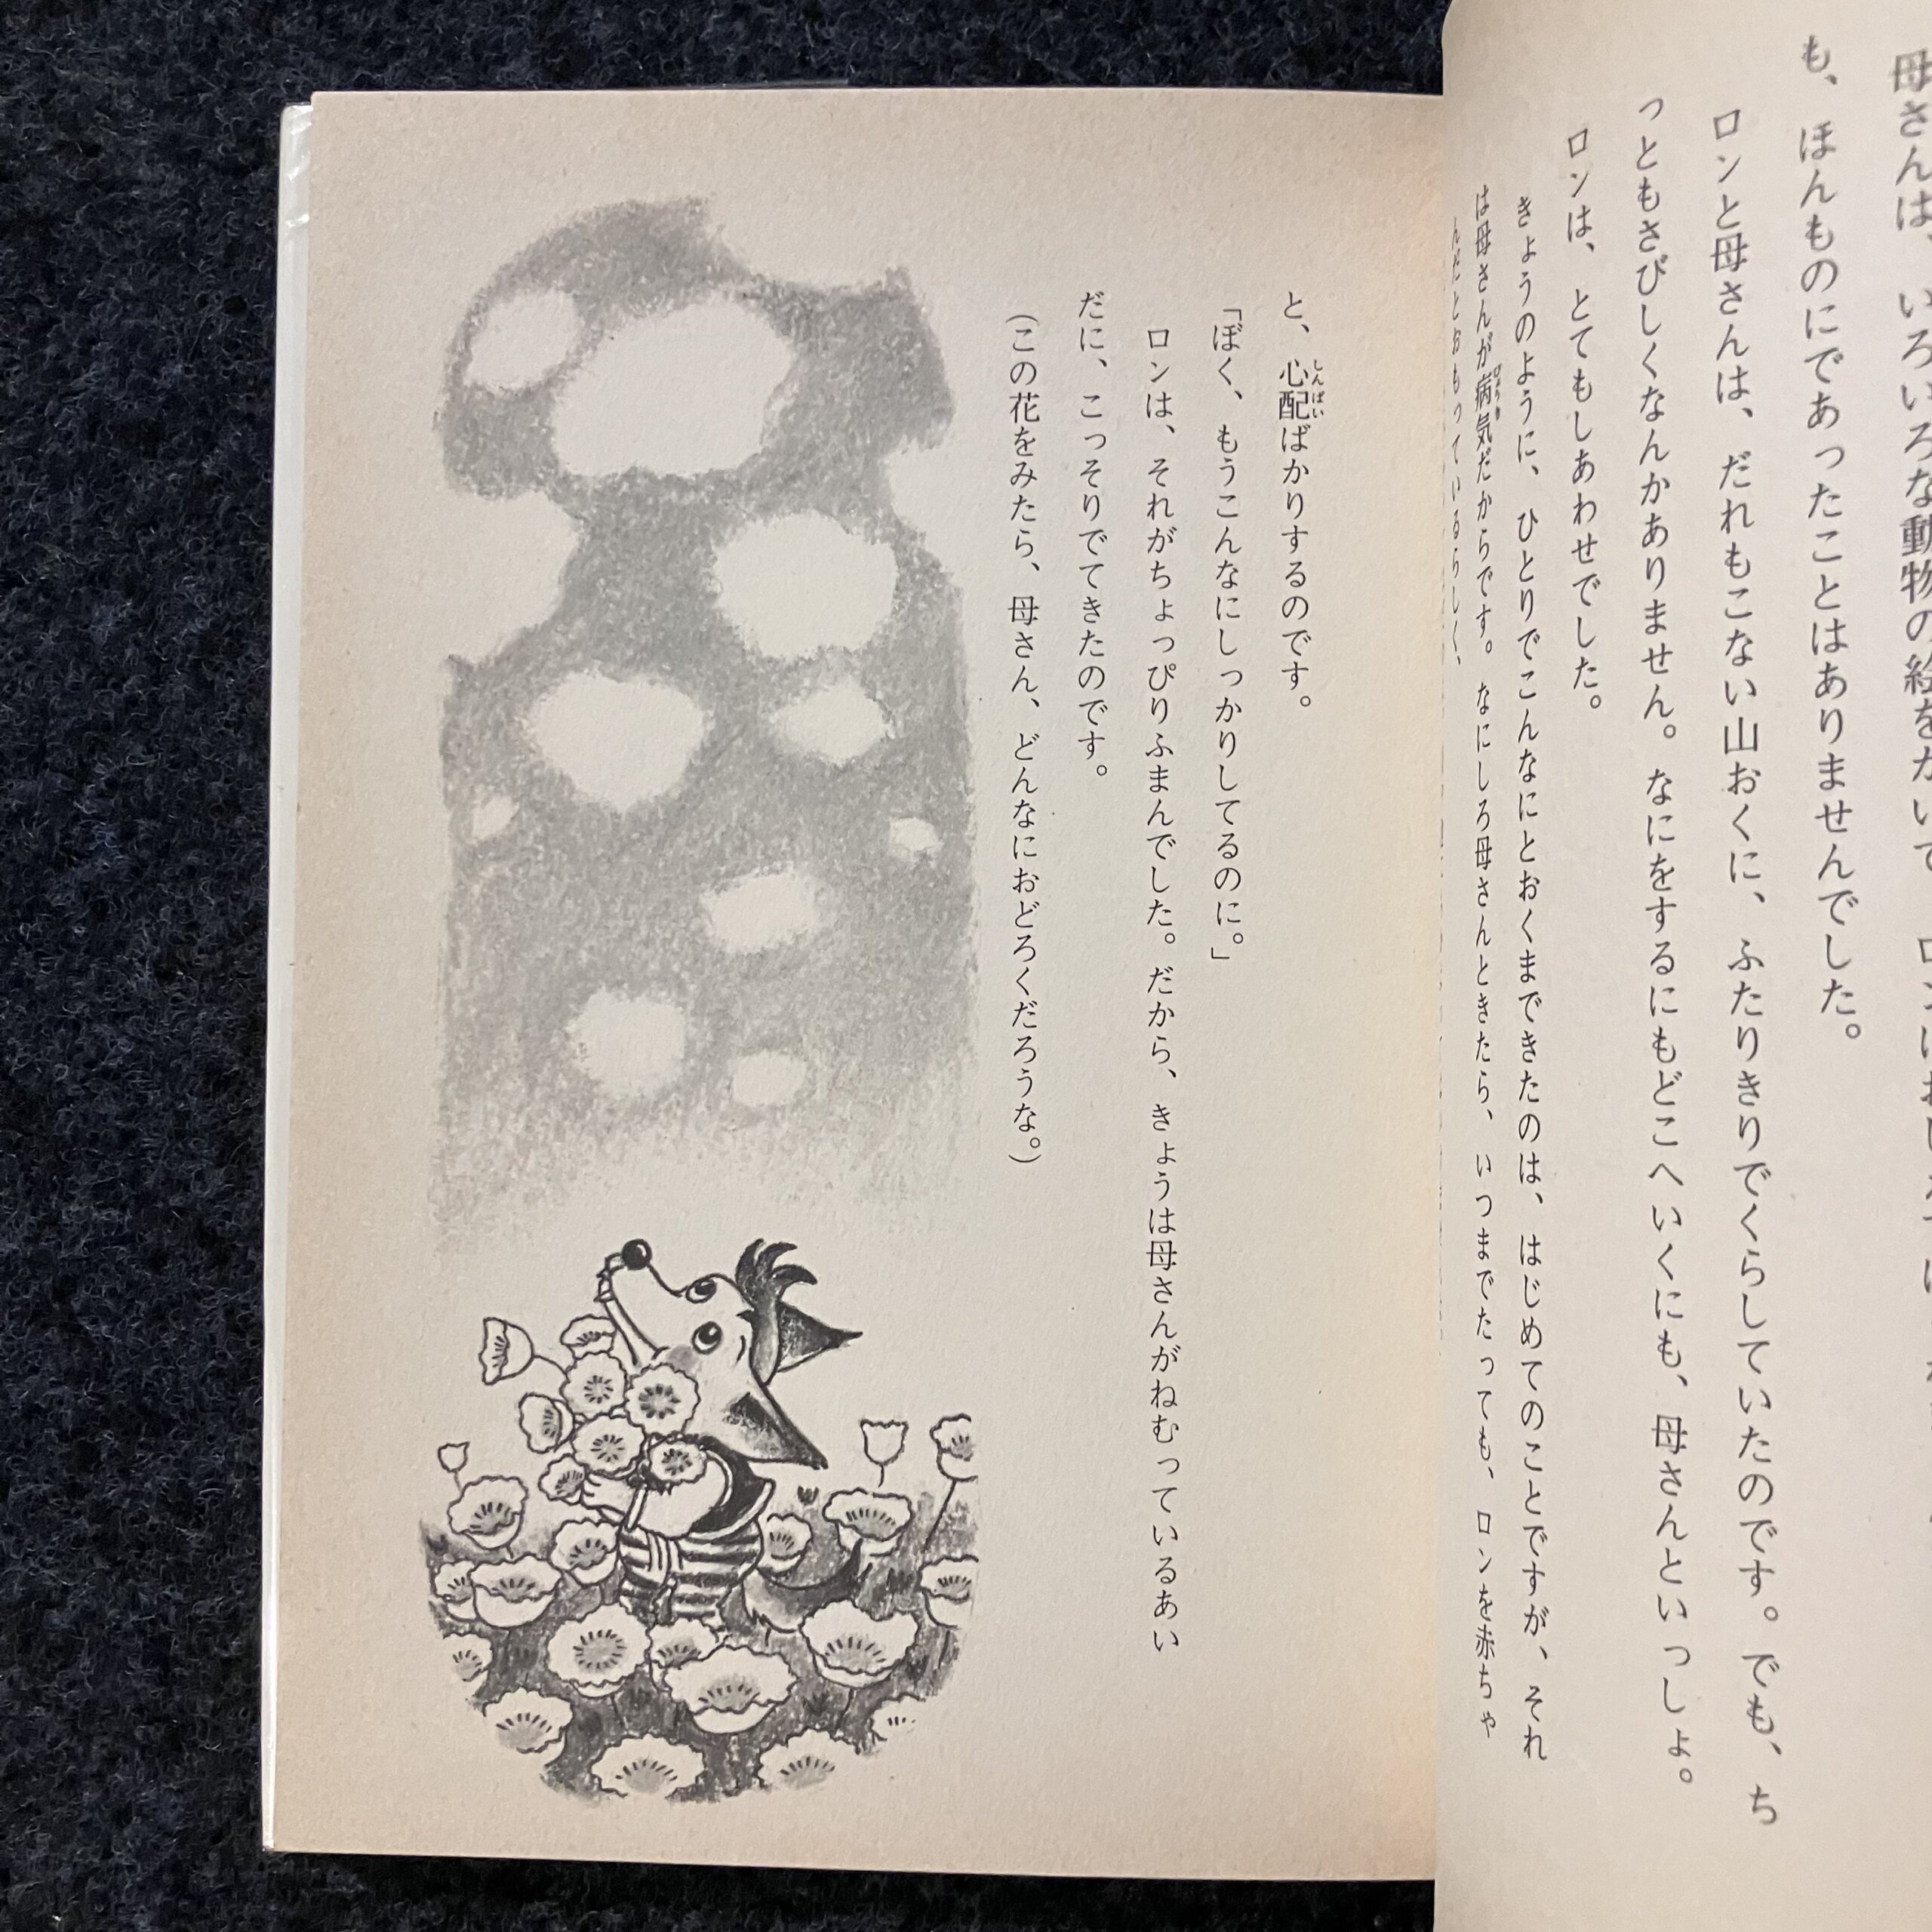 母さんは、いろいろな動物の絵をかいて
も、ほんものにであったことはありませんでした。
ロンと母さんは、だれもこない山おくに、ふたりきりでくらしていたのです。でも、ち
っともさびしくなんかありません。なにをするにもどこへいくにも、母さんといっしょ。
ロンは、とてもしあわせでした。
きょうのように、ひとりでこんなにとおくまできたのは、はじめてのことですが、それ
は母さんが病気だからです。なにしろ母さんときたら、いつまでたっても、ロンを赤ちゃ
んだとおもっているらしく、
と、心配ばかりするのです。
「ぼく、もうこんなにしっかりしてるのに。」
ロンは、それがちょっぴりふまんでした。だから、きょうは母さんがねむっているあい
だに、こっそりでてきたのです。
(この花をみたら、母さん、どんなにおどろくだろうな。)